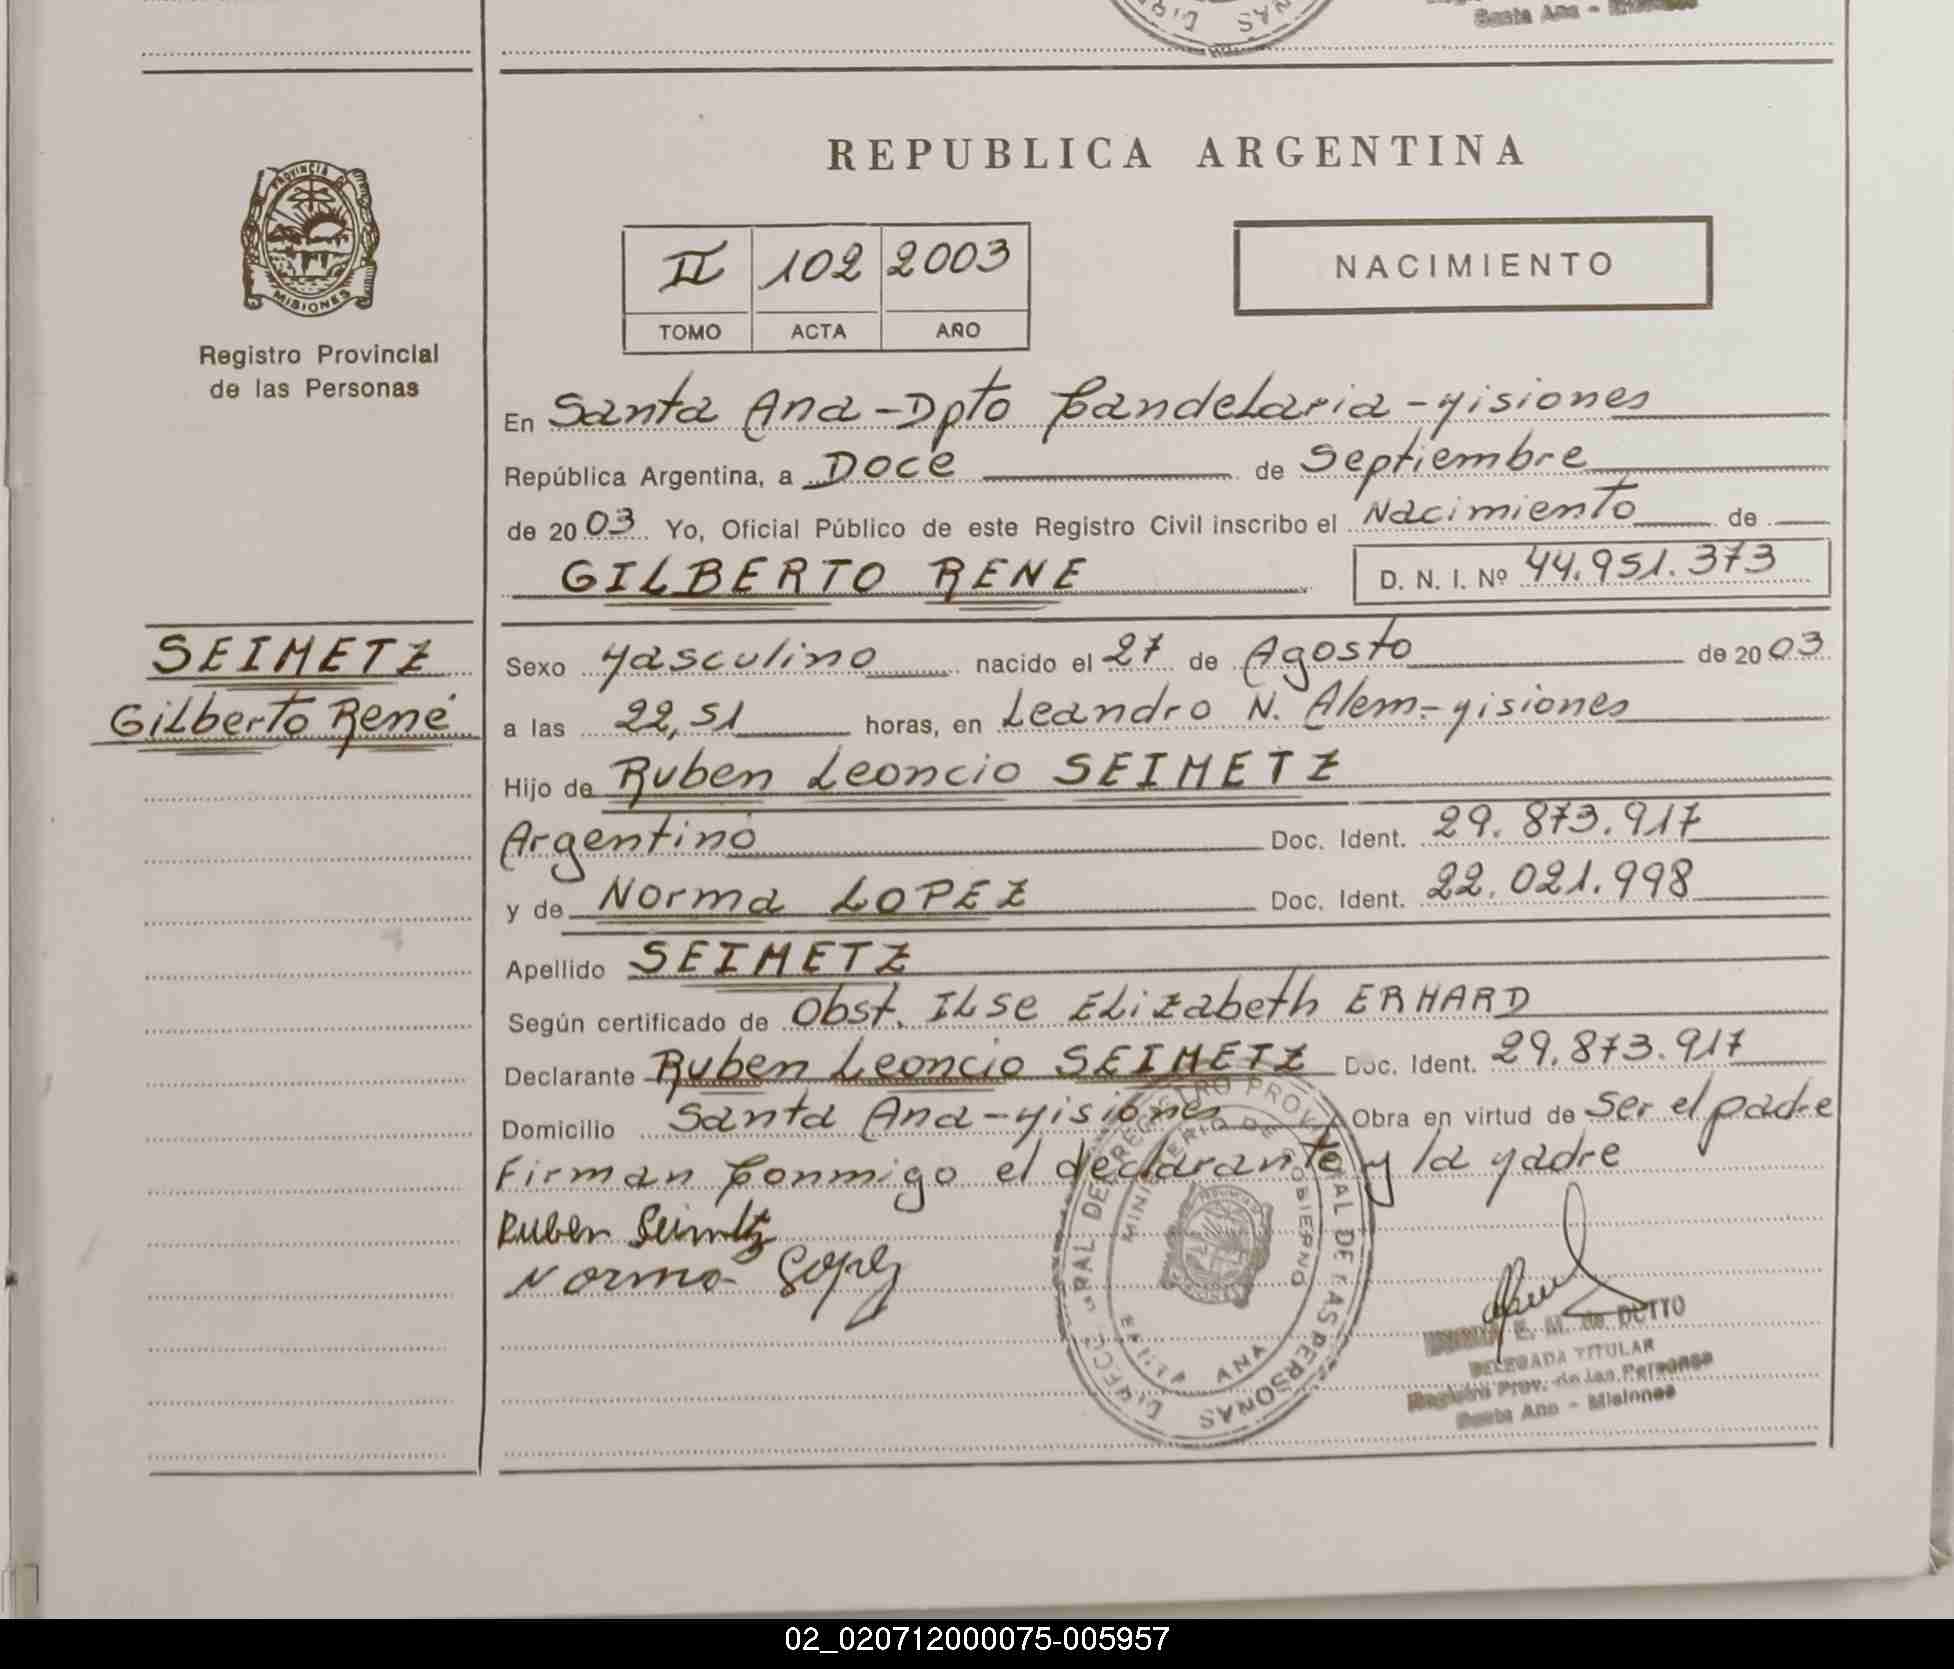 Santa Ana -
REPUBLICA ARGENTINA
PROVINCIA DE
MISIONES
Registro Provincial
de las Personas
II 102 2003
TOMO ACTA AÑO
NACIMIENTO
En Santa Ana - Dpto Candelaria - Misiones
República Argentina, a Doce de Septiembre
de 2003 Yo, Oficial Público de este Registro Civil inscribo el Nacimiento de
GILBERTO RENE D. N. I. Nº 44.951.373
SEIMETZ
Gilberto René
Sexo Masculino nacido el 27 de Agosto de 2003
a las 22,51 horas, en Leandro N. Alem - Misiones
Hijo de Ruben Leoncio SEIMETZ
Argentino Doc. Ident. 29.873.917
y de Norma LOPEZ Doc. Ident. 22.021.998
Apellido SEIMETZ
Según certificado de Obst. Ilse Elizabeth ERHARD
Declarante Ruben Leoncio SEIMETZ Doc. Ident. 29.873.917
Domicilio Santa Ana - Misiones Obra en virtud de Ser el padre
Firman Conmigo el declarante y la Madre
Ruben Seimetz
Norma Lopez
REGISTRO PROVINCIAL DE LAS PERSONAS
MINISTERIO DE GOBIERNO
SANTA ANA
E. M. de DUTTO
DELEGADA TITULAR
Registro Prov. de las Personas
Santa Ana - Misiones
02_020712000075-005957